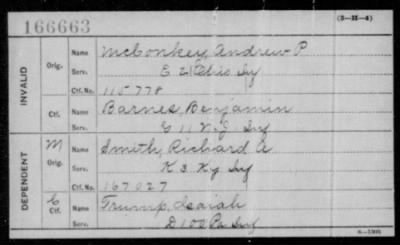 166663
(3-M-4)
INVALID
Orig.
Name McConkey, Andrew P
Serv. E 21 Ohio Inf
Ctf. No. 115778
Ctf.
Name Barnes, Benjamin
Serv. G 11 N.J. Inf
DEPENDENT
M
Orig.
Name Smith, Richard A
Serv. K 3 Ky Inf
Ctf. No. 167027
C
Ctf.
Name Trump, Isaiah
Serv. D 100 Pa Inf